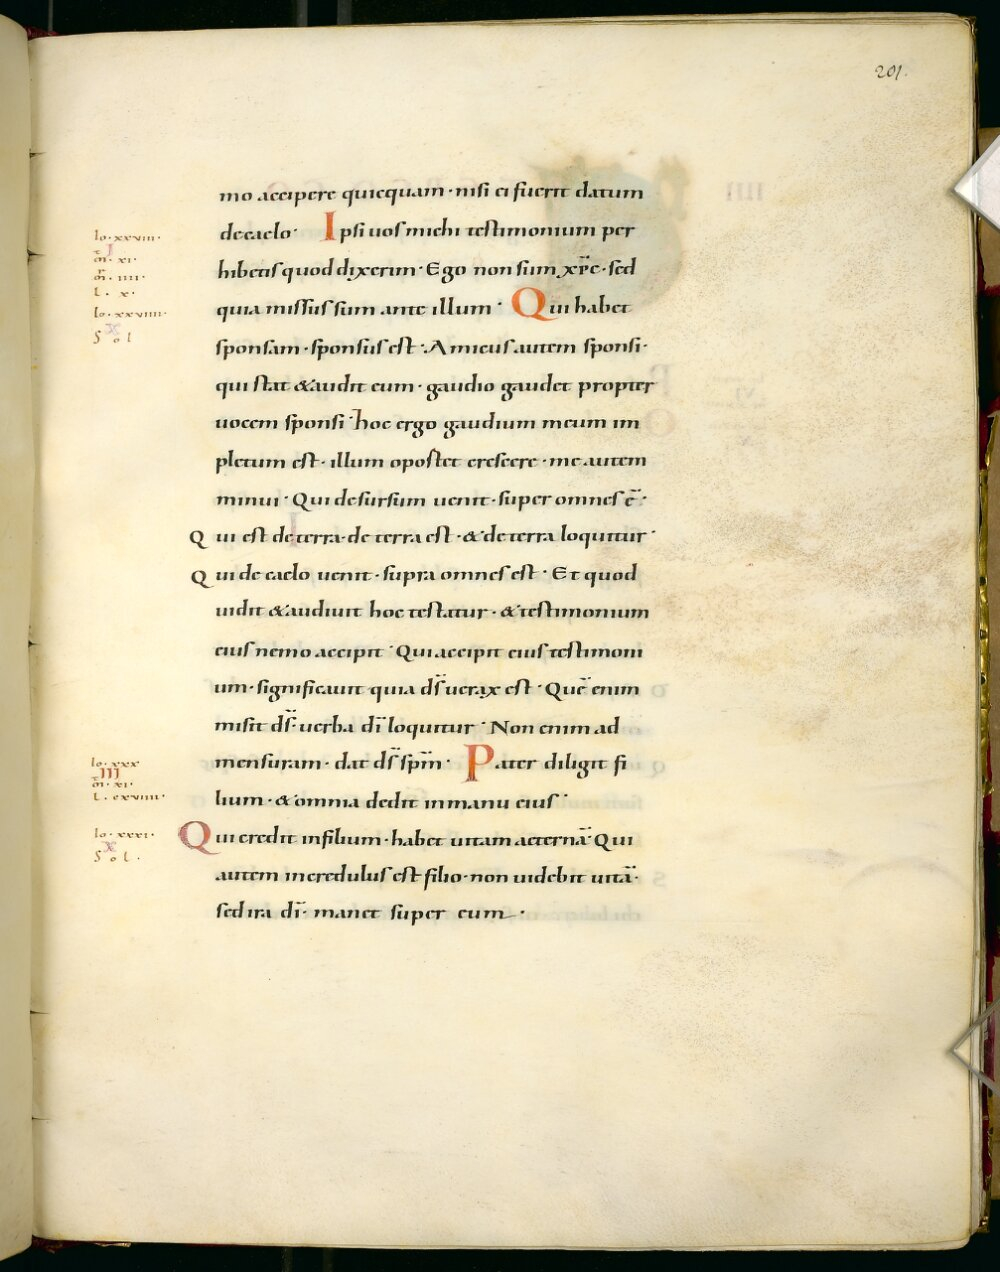 201.
mo accipere quicquam · nisi ei fuerit datum
de caelo · Ipsi uos michi testimonium per
hibetis quod dixerim · Ego non sum xp̄c · sed
quia missus sum ante illum · Qui habet
sponsam · sponsus est · Amicus autem sponsi ·
qui stat & audit eum · gaudio gaudet propter
uocem sponsi · hoc ergo gaudium meum im
pletum est · illum oportet crescere · me autem
minui · Qui desursum uenit · super omnes ē ·
Qui est de terra · de terra est · & de terra loquitur ·
Qui de caelo uenit · supra omnes est · Et quod
uidit & audiuit hoc testatur · & testimonium
eius nemo accipit · Qui accipit eius testimoni
um · significauit quia d̄s uerax est · Quē enim
misit d̄s · uerba d̄i loquitur · Non enim ad
mensuram · dat d̄s sp̄m · Pater diligit fi
lium · & omnia dedit in manu eius ·
Qui credit in filium · habet uitam aeternā · Qui
autem incredulus est filio · non uidebit uitā ·
sed ira d̄i · manet super eum ·
Io · xxviii ·
I
m̄ · xi ·
m̄ · iiii ·
L · x ·
Io · xxviiii ·
X
Sol
Io · xxx
III
m̄ · xi ·
L · cxviiii ·
Io · xxxi ·
X
Sol ·